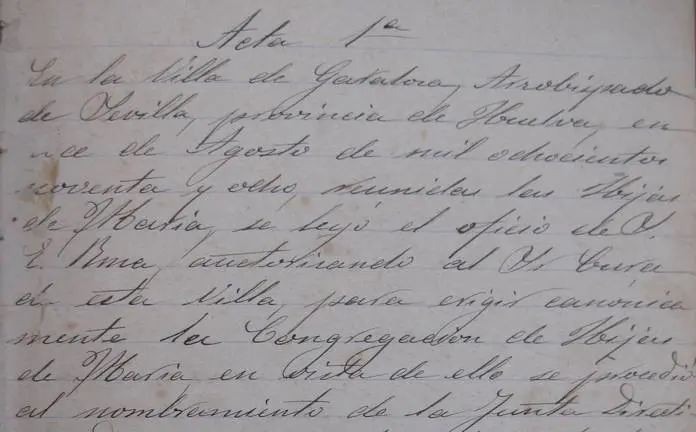 Acta 1ª
En la Villa de Arzobispado
de Sevilla, provincia de Huelva, en
de Agosto de mil ochocientos
noventa y ocho, reunidas las Hijas
de Maria, se leyó el oficio de S.
E. Rma, autorizando al Sr Cura
de esta Villa, para erigir canónica
mente la Congregación de Hijas
de Maria, en vista de ello se procedió
al nombramiento de la Junta Directi